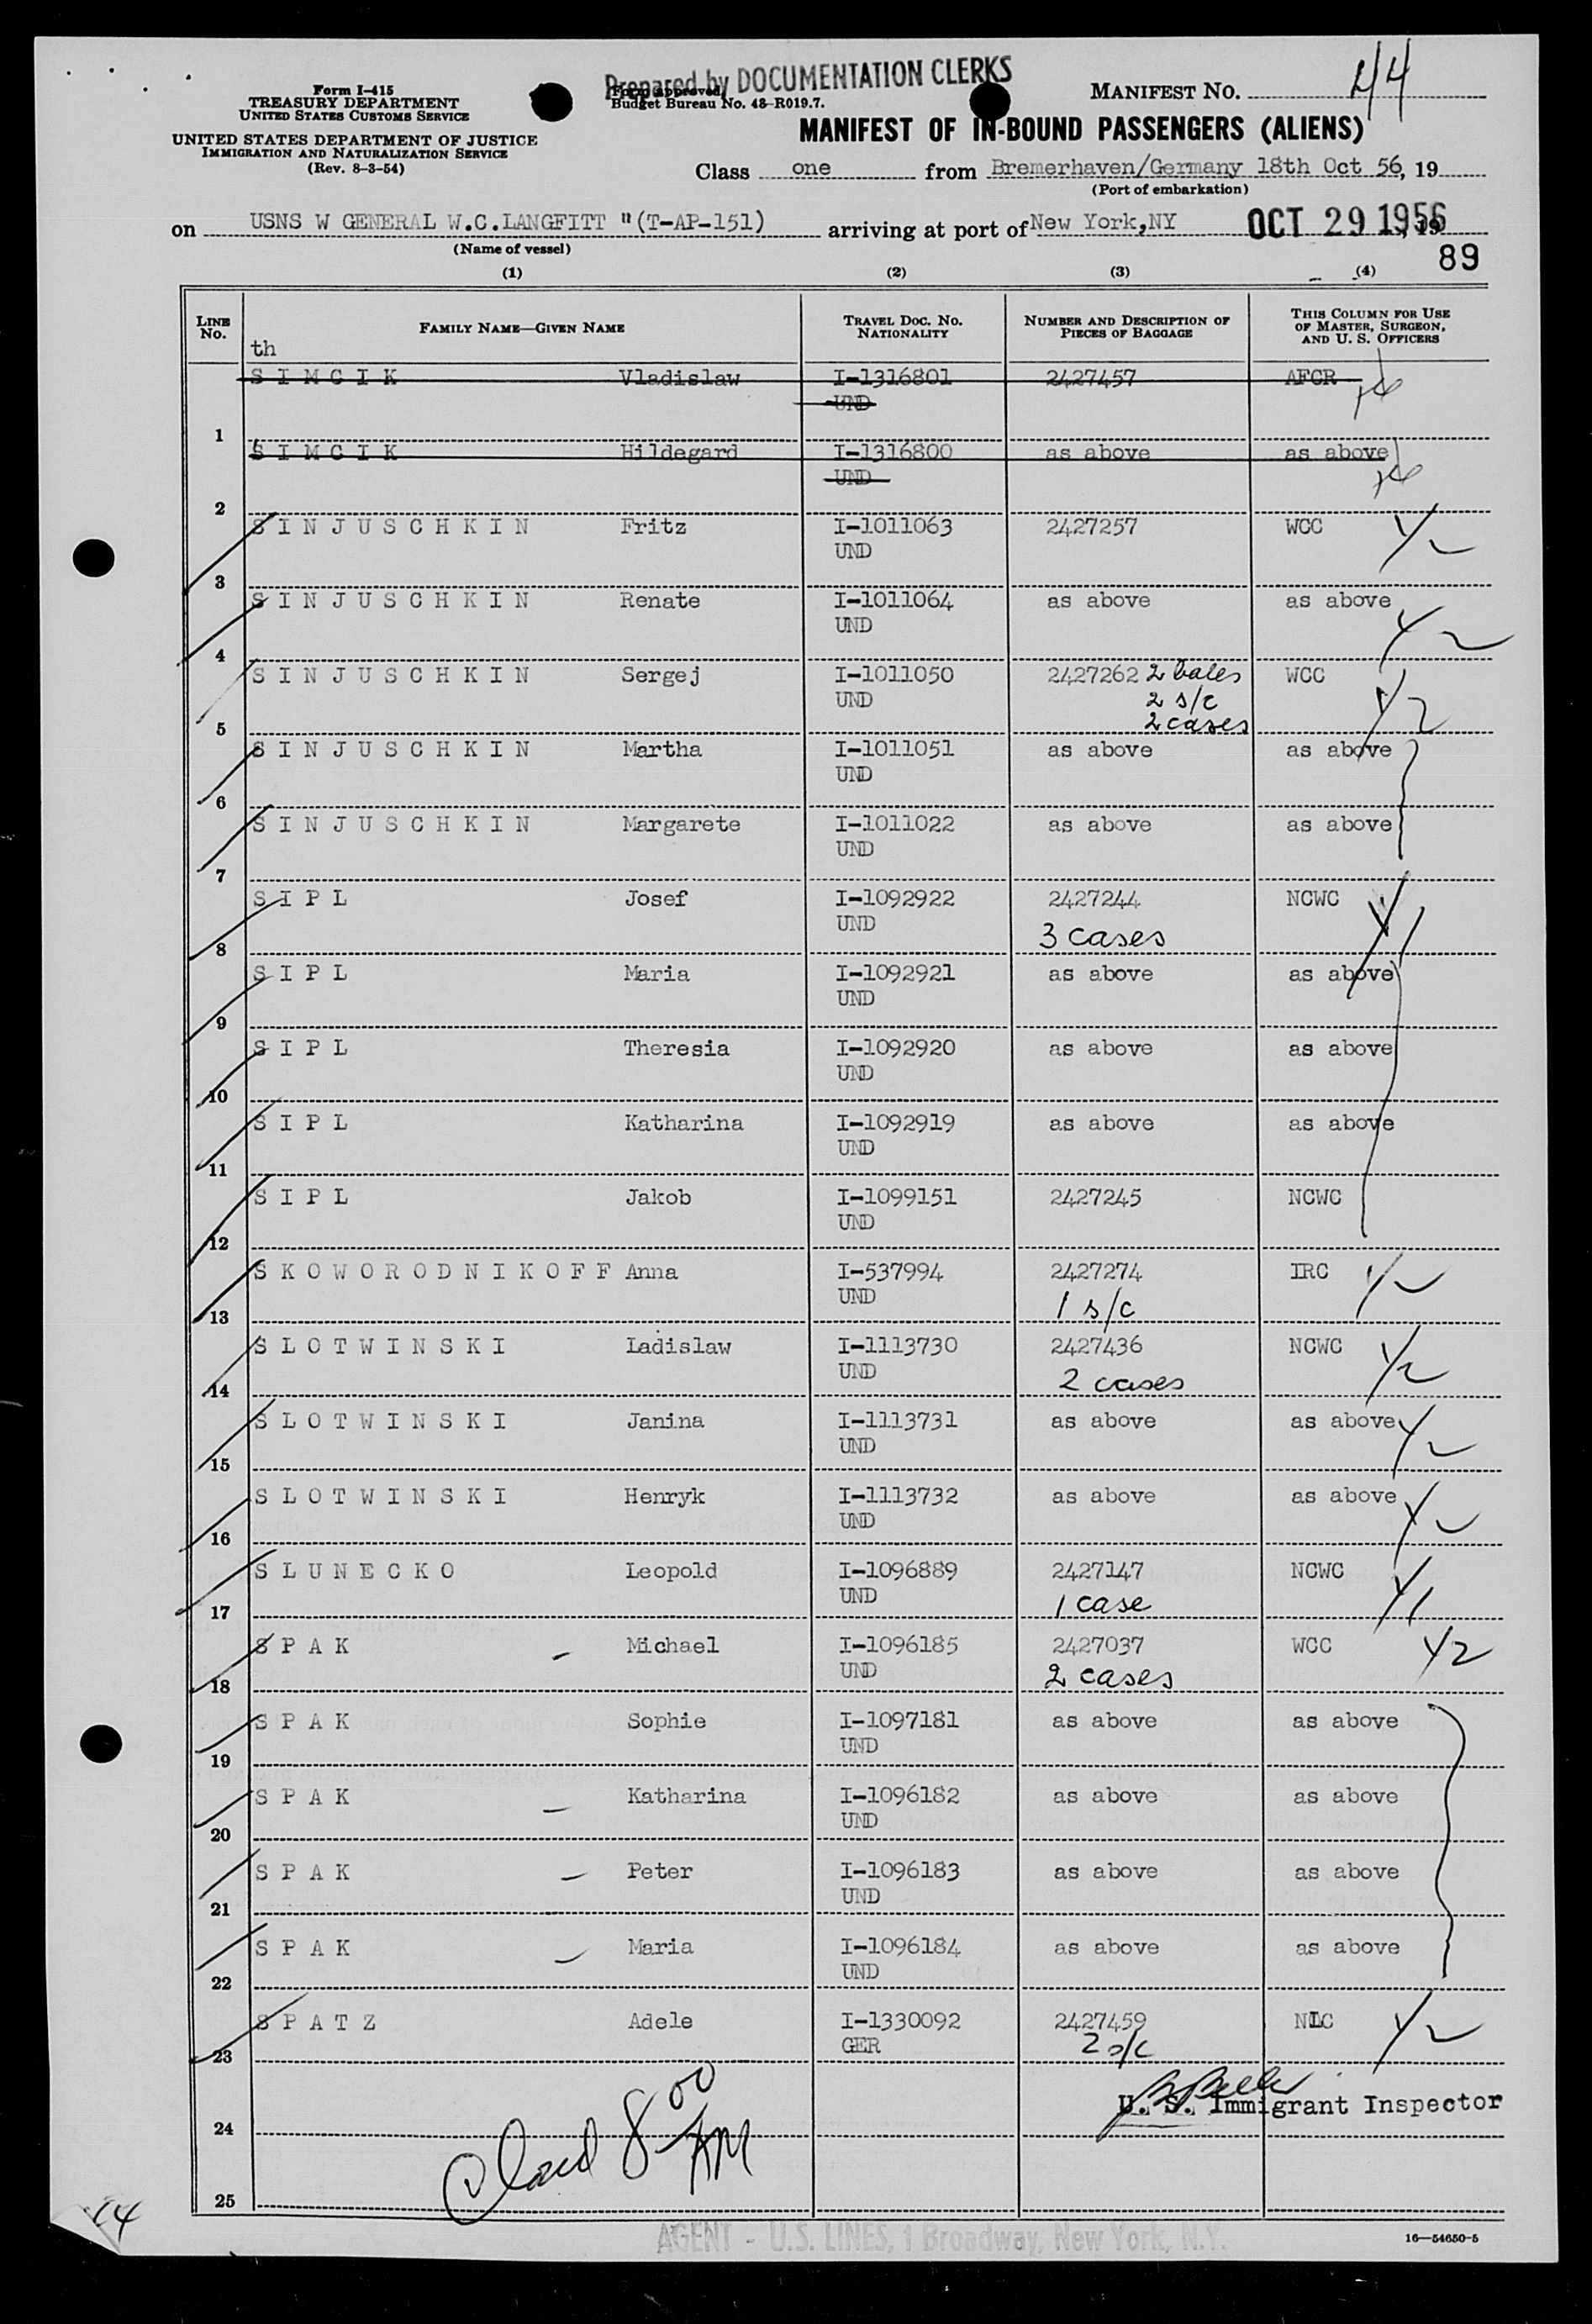 Form I-415
TREASURY DEPARTMENT
UNITED STATES CUSTOMS SERVICE
UNITED STATES DEPARTMENT OF JUSTICE
IMMIGRATION AND NATURALIZATION SERVICE
(Rev. 8-3-54)
Prepared by DOCUMENTATION CLERKS
Form approved
Budget Bureau No. 43-R019.7.
MANIFEST NO. 44
MANIFEST OF IN-BOUND PASSENGERS (ALIENS)
Class one from Bremerhaven/Germany 18th Oct 56, 19
(Port of embarkation)
on USNS W GENERAL W.C.LANGFITT "(T-AP-151) arriving at port of New York,NY OCT 29 1956, 19
(Name of vessel)
89
(1) (2) (3) (4)
LINE No. FAMILY NAME—GIVEN NAME TRAVEL DOC. NO. NATIONALITY NUMBER AND DESCRIPTION OF PIECES OF BAGGAGE THIS COLUMN FOR USE OF MASTER, SURGEON, AND U. S. OFFICERS
th
S I M C I K Vladislaw I-1316801 2427457 AFCR
UND
1
S I M C I K Hildegard I-1316800 as above as above
UND
2
S I N J U S C H K I N Fritz I-1011063 2427257 WCC Y2
UND
3
S I N J U S C H K I N Renate I-1011064 as above as above Y2
UND
4
S I N J U S C H K I N Sergej I-1011050 2427262 2 bales WCC Y2
UND 2 s/c
5 2 cases
S I N J U S C H K I N Martha I-1011051 as above as above
UND
6
S I N J U S C H K I N Margarete I-1011022 as above as above
UND
7
S I P L Josef I-1092922 2427244 NCWC Y1
UND 3 cases
8
S I P L Maria I-1092921 as above as above
UND
9
S I P L Theresia I-1092920 as above as above
UND
10
S I P L Katharina I-1092919 as above as above
UND
11
S I P L Jakob I-1099151 2427245 NCWC
UND
12
S K O W O R O D N I K O F F Anna I-537994 2427274 IRC Y2
UND 1 s/c
13
S L O T W I N S K I Ladislaw I-1113730 2427436 NCWC Y2
UND 2 cases
14
S L O T W I N S K I Janina I-1113731 as above as above Y2
UND
15
S L O T W I N S K I Henryk I-1113732 as above as above Y2
UND
16
S L U N E C K O Leopold I-1096889 2427147 NCWC Y1
UND 1 case
17
S P A K Michael I-1096185 2427037 WCC Y2
UND 2 cases
18
S P A K Sophie I-1097181 as above as above
UND
19
S P A K Katharina I-1096182 as above as above
UND
20
S P A K Peter I-1096183 as above as above
UND
21
S P A K Maria I-1096184 as above as above
UND
22
S P A T Z Adele I-1330092 2427459 NLC Y2
GER 2 s/c
23
U. S. Immigrant Inspector
24
8 00 AM
25
14
AGENT - U.S. LINES, 1 Broadway, New York, N.Y.
16—54650-5